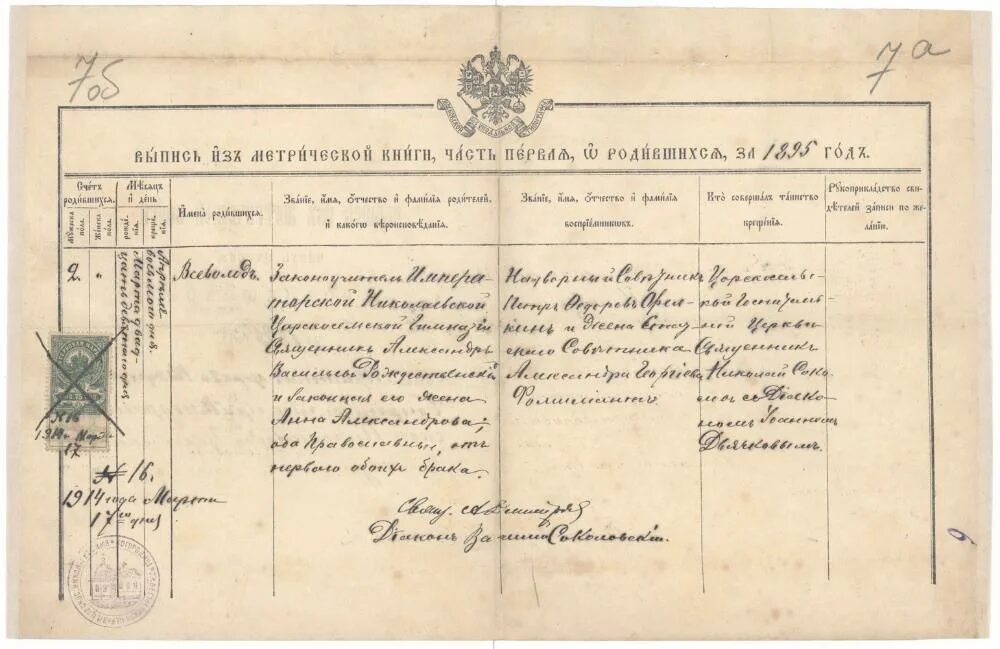 7об
7а
ВЫПИСЬ ИЗЪ МЕТРИЧЕСКОЙ КНИГИ, ЧАСТЬ ПЕРВАЯ, Ѡ РОДИВШИХСЯ, ЗА 1895 ГОДЪ.
Счетъ родившихся.
Мужеска пола.
Женска пола.
Мѣсяцъ и день
рожденія.
крещенія.
Имена родившихся.
Званіе, имя, отчество и фамилія родителей,
и какогѡ вѣроисповѣданія.
Званіе, имя, отчество и фамилія
воспріемниковъ.
Кто совершалъ таинство
крещенія.
Рукоприкладство сви-
дѣтелей записи по же-
ланію.
2.
„
Марта двад-
цать девятаго дня
Апрѣля
восьмого дня.
Всеволодъ.
Законоучитель Импера-
торской Николаевской
Царскосельской Гимназіи
Священникъ Александръ
Васильевъ Рождественскій
и законная его жена
Анна Александрова;
оба Православные, отъ
перваго обоихъ брака.
Надворный Совѣтникъ
Петръ Ѳедоровъ
и жена Стат-
скаго Совѣтника
Александра Георгіева
Царскосельс-
кой Госпиталь-
ной Церкви
Священникъ
Николай Соко-
ловъ съ Діако-
номъ Іоанномъ
Дьячковымъ.
№ 16
1914 г. Марта
17
№ 16.
1914 года Марта
17го дня
Свящ.
Діаконъ Соколовскій.
6